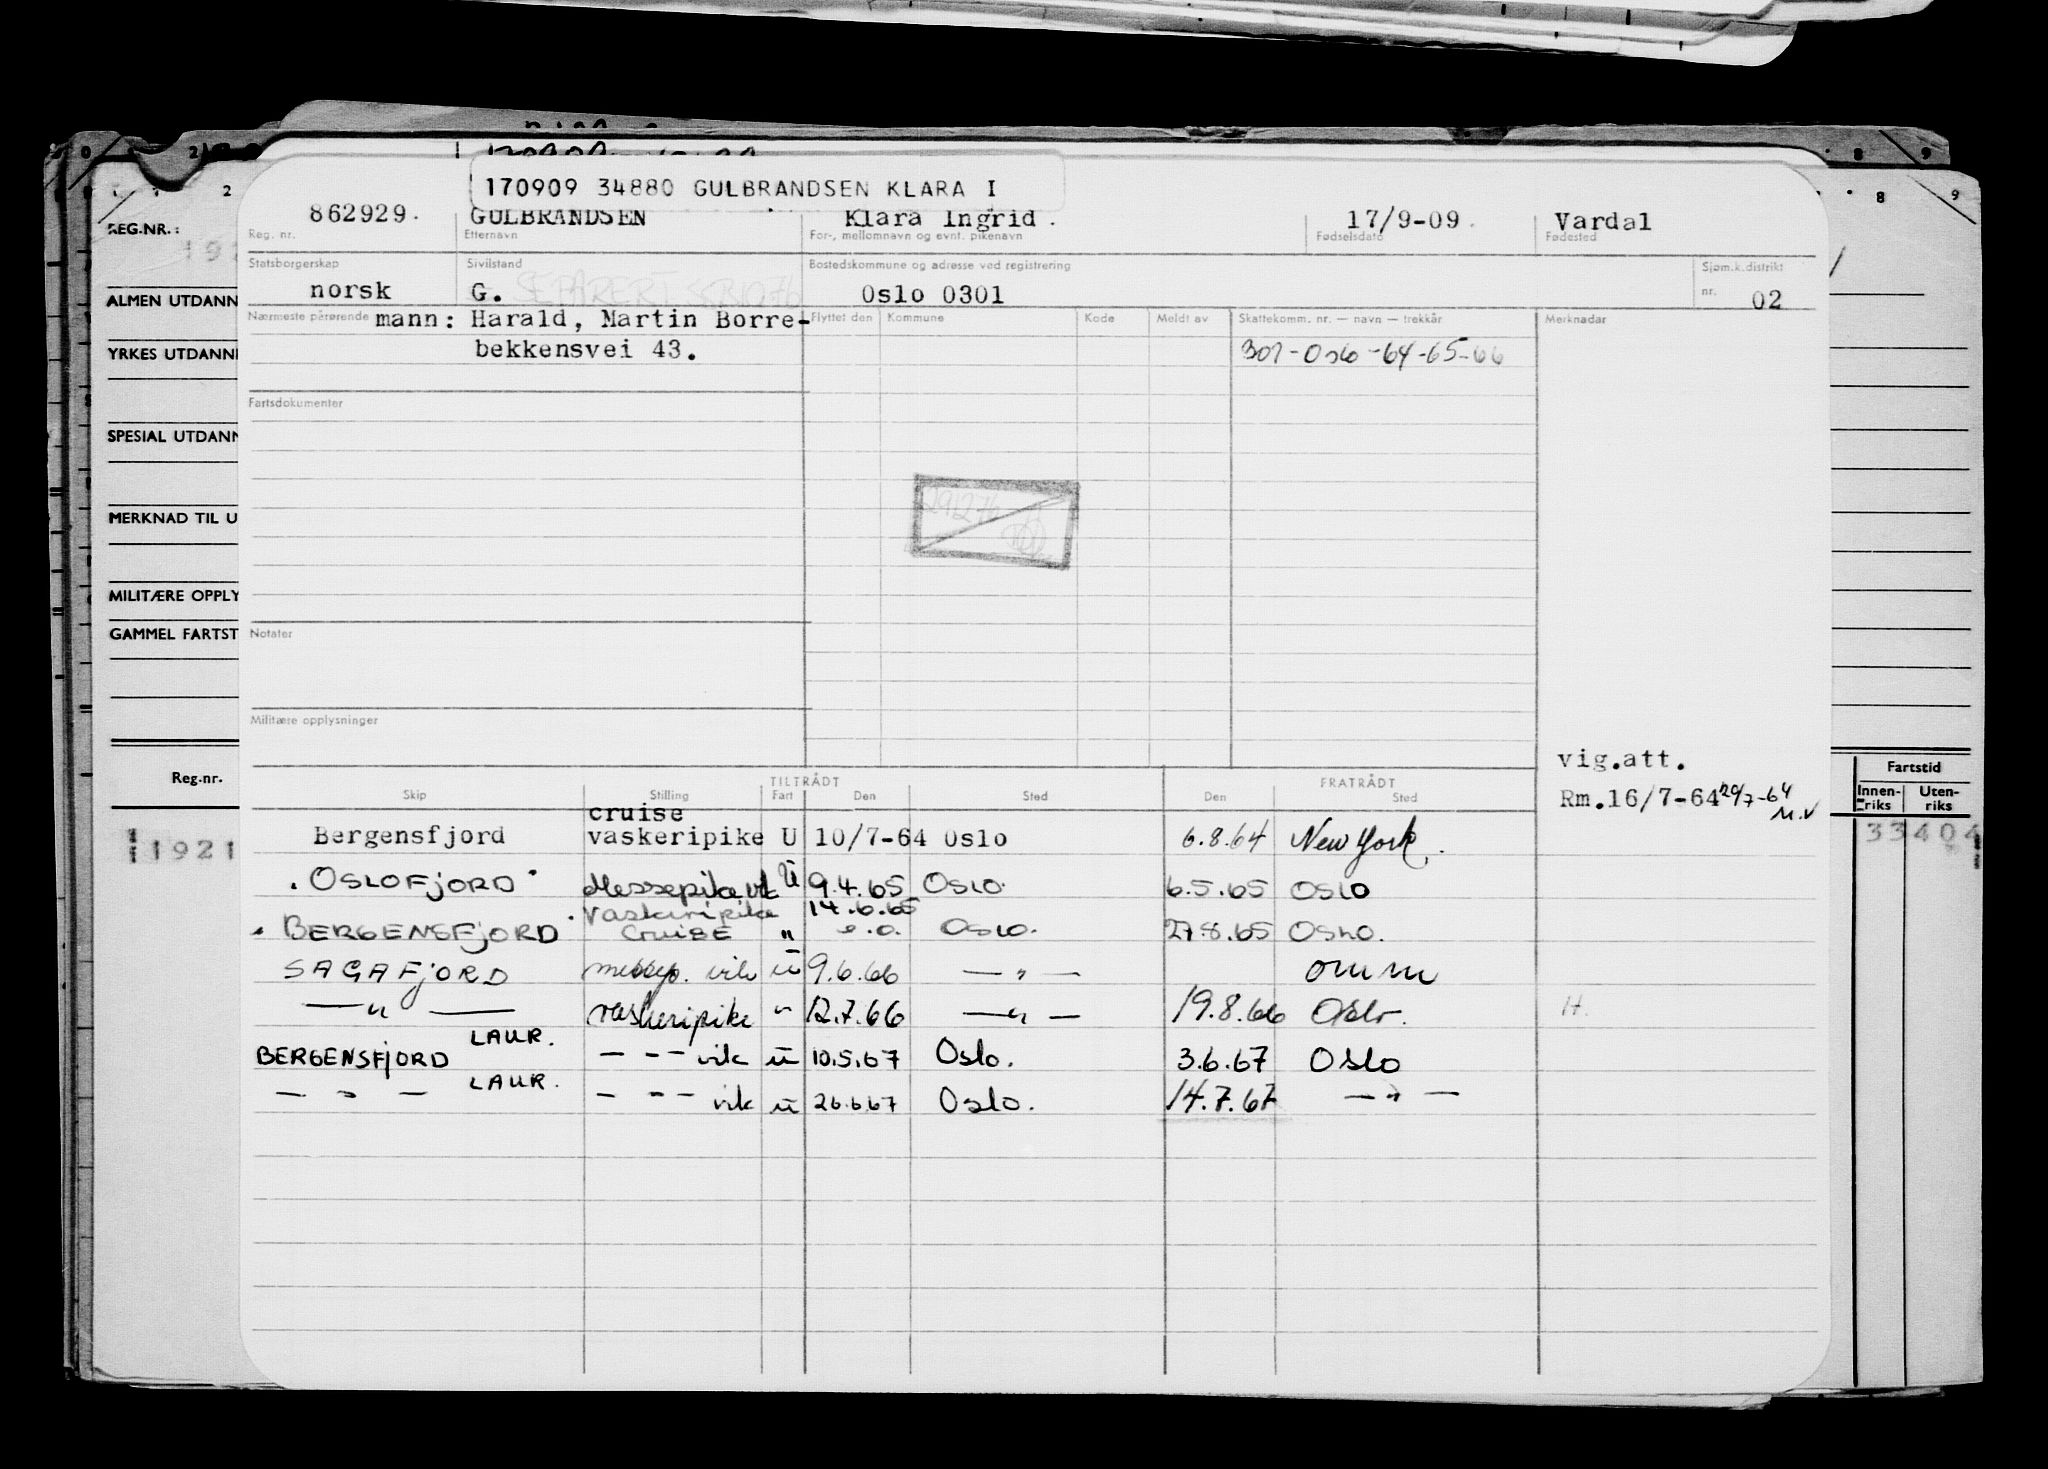 170909 34880 GULBRANDSEN KLARA I
862929. GULBRANDSEN Klara Ingrid. 17/9-09. Vardal
Reg. nr. Etternavn For-, mellomnavn og evnt. pikenavn Fødselsdato Fødested
Statsborgerskap Sivilstand Bostedskommune og adresse ved registrering Sjøm.k.distrikt
norsk G. SEPARERT Oslo 0301 nr. 02
Nærmeste pårørende mann: Harald, Martin Borre- Flyttet den Kommune Kode Meldt av Skattekomm. nr. — navn — trekkår Merknader
bekkensvei 43. 301-Oslo-64-65-66
Fartsdokumenter
291276
Notater
Militære opplysninger
vig.att.
TILTRÅDT FRATRÅDT
Skip Stilling Fart Den Sted Den Sted Rm.16/7-64 29/7-64
M.V
cruise
Bergensfjord vaskeripike U 10/7-64 Oslo 6.8.64 New York.
"OSLOFJORD" Messepike vik Ü 9.4.65 OSLO. 6.5.65 OSLO
Vaskeripike 14.6.65
"BERGENSFJORD" CRUISE " e.o. OSLO. 27.8.65 OSLO.
SAGAFJORD messep. vik ü 9.6.66 — " — omm
— " — vaskeripike " 12.7.66 — " — 19.8.66 Oslo. H.
LAUR.
BERGENSFJORD — " — vik ü 10.5.67 Oslo. 3.6.67 Oslo
LAUR.
— " — — " — vik ü 26.6.67 Oslo. 14.7.67 — " —
REG.NR.:
ALMEN UTDANN
YRKES UTDANN
SPESIAL UTDANN
MERKNAD TIL U
MILITÆRE OPPLY
GAMMEL FARTST
Reg.-nr.
1921
8 9
8 9
Fartstid
Innen-riks Uten-riks
33404